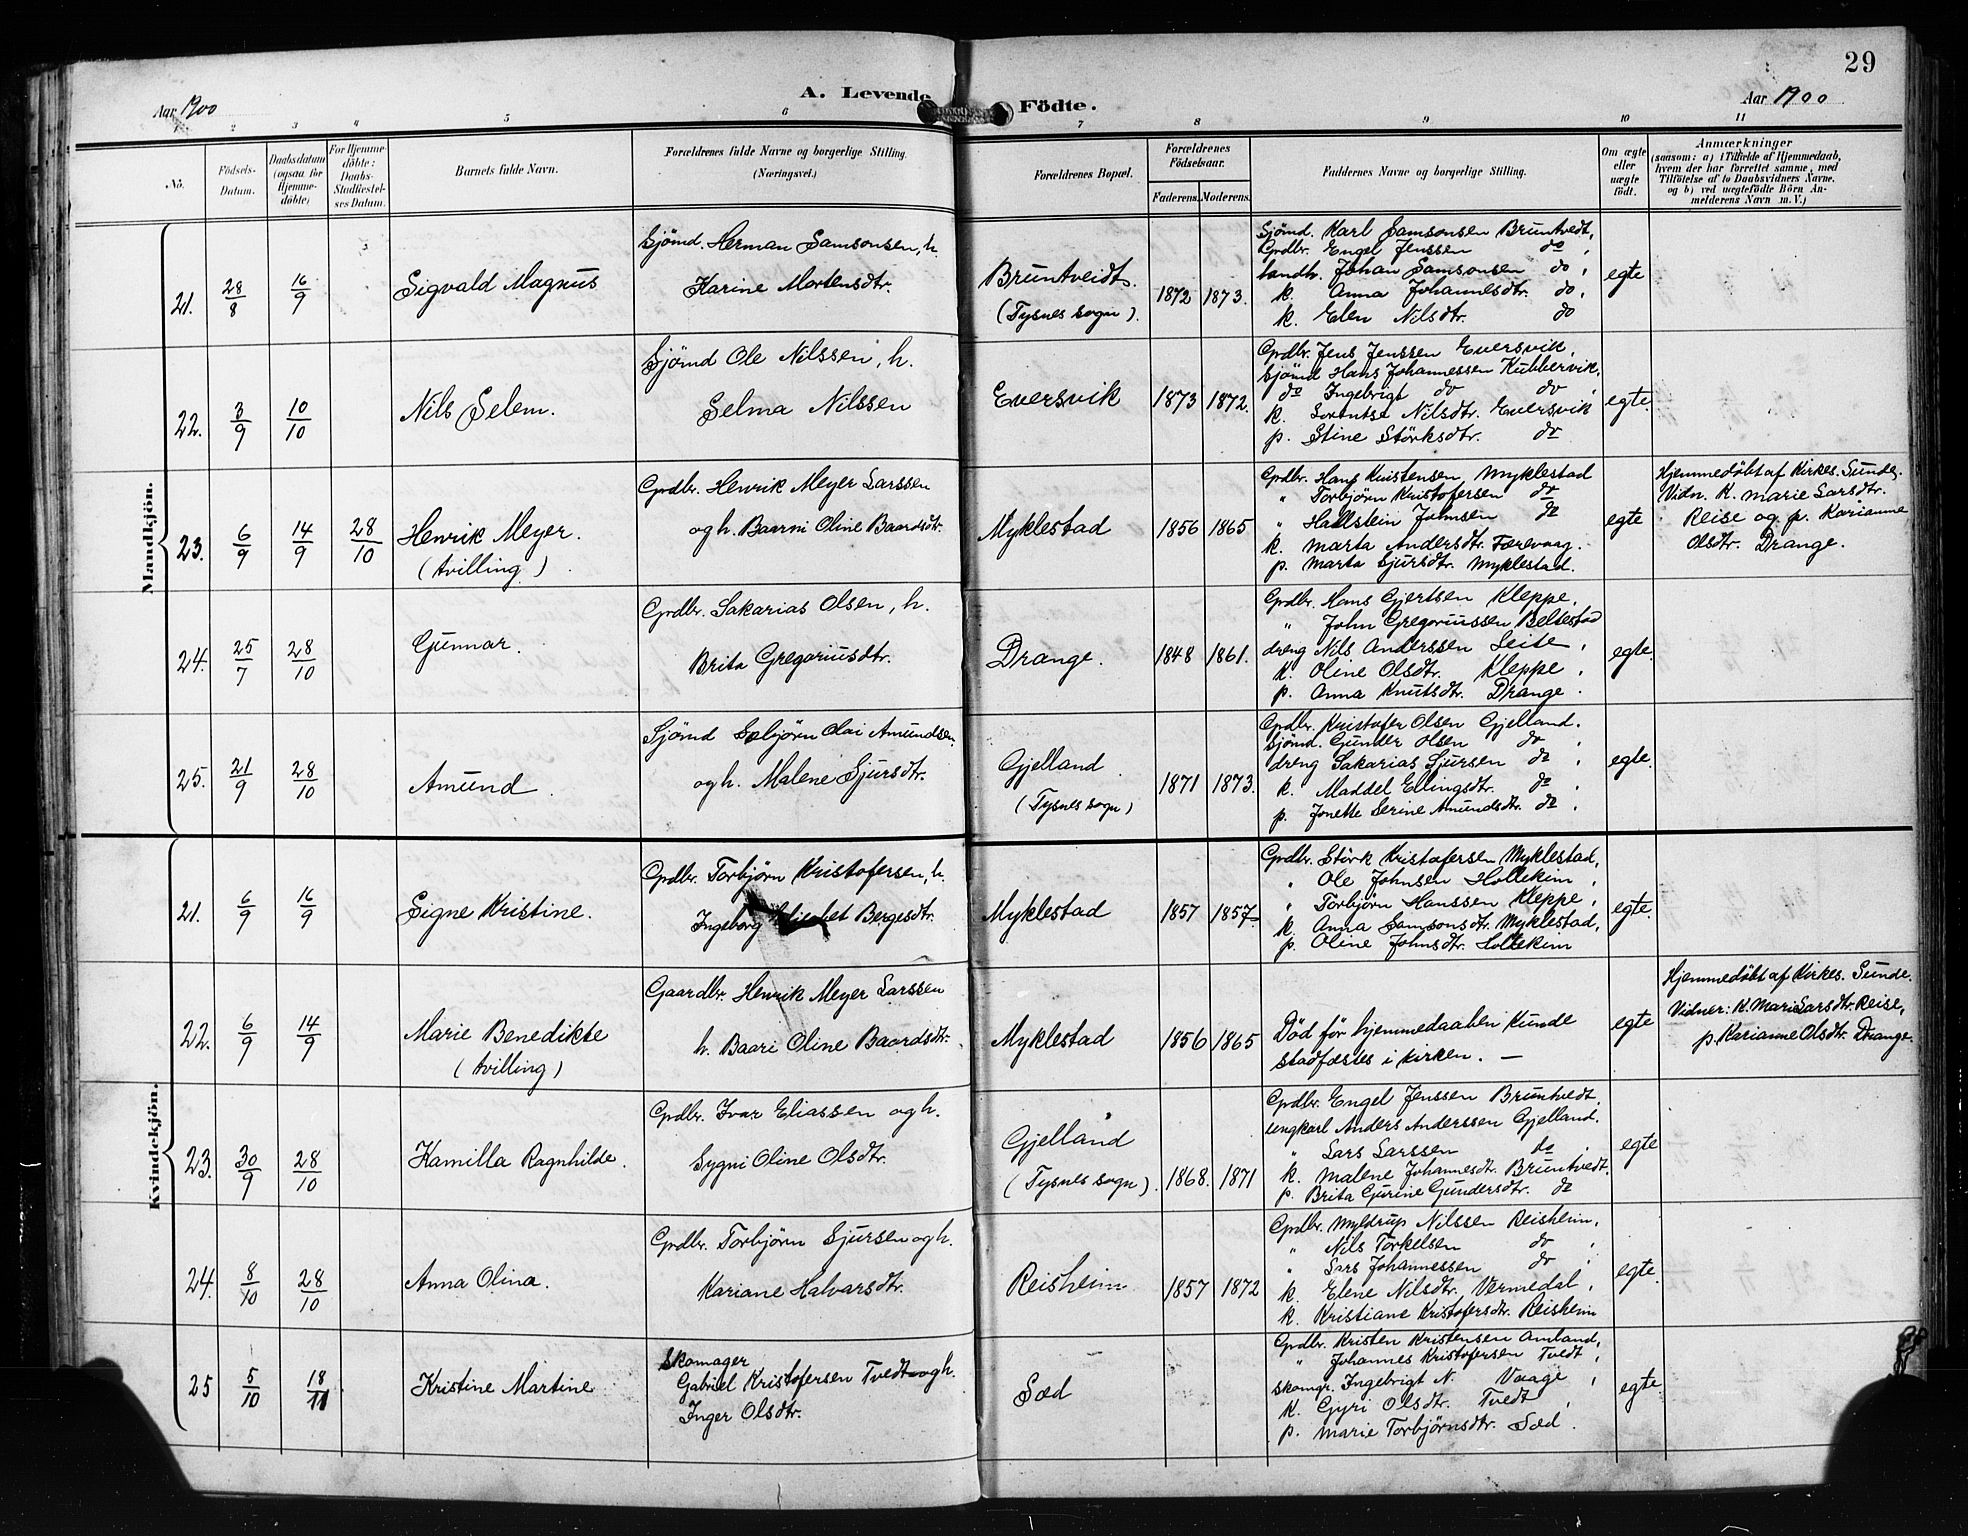 29
A. Levende Födte.
Aar 1900
Aar 1900
1 2 3 4 5 6 7 8 9 10 11
No.
Födsels-Datum.
Daabsdatum (ogsaa for Hjemme-döbte)
For Hjemme-döbte: Daabs-Stadfæstel-ses Datum.
Barnets fulde Navn.
Forældrenes fulde Navne og borgerlige Stilling.
(Næringsvei.)
Forældrenes Bopæl.
Forældrenes Födselsaar.
Faderens. Moderens.
Faddernes Navne og borgerlige Stilling.
Om ægte eller uægte födt.
Anmærkninger
(saasom: a) i Tilfælde af Hjemmedaab,
hvem der har forrettet samme, med
Tilföielse af to Daabsvidners Navne.
og b) ved uægtefödte Börn An-
melderens Navn m. V.)
Mandkjön.
21. 28/8 16/9 Sigvald Magnus
Sjömd. Herman Samsonsen, h.
Karine Mortensdtr.
Bruntveidt.
(Tysnes sogn).
1872 1873.
Sjömd. Karl Samsonsen Bruntvedt,
Grdbr. Engel Jenssen do,
landh. Johan Samsonsen do,
k. Anna Johannesdtr. do,
k. Elen Nilsdtr. do
egte
22. 3/9 10/10 Nils Selem.
Sjömd Ole Nilssen, h.
Selma Nilssen
Eversvik
1873 1872.
Grdbr. Jens Jenssen Eversvik,
Sjömd Hans Johannessen Kubbervik,
do Ingebrigt do do,
k. Sorentse Nilsdtr. Eversvik
p. Stine Störksdtr. do
egte.
23. 6/9 14/9 28/10 Henrik Meyer.
(tvilling)
Grdbr. Henrik Meyer Larssen
og h. Baarni Oline Baardsdtr.
Myklestad
1856 1865
Grdbr. Hans Kristensen Myklestad
" Torbjörn Kristofersen do
" Hallstein Johnsen do
k. Marta Andersdtr. Færevaag.
p. Marta Sjursdtr. Myklestad.
egte
Hjemmedöbt af Kirkes. Sunde.
Vidn. K. Marie Larsdtr.
Reise og p. Karianne
Olsdtr. Drange.
24. 25/7 28/10 Gunnar.
Grdbr. Sakarias Olsen, h.
Brita Gregoriusdtr.
Drange.
1848 1861.
Grdbr. Hans Gjertsen Kleppe,
" John Gregoriussen Beltestad
dreng Nils Anderssen Leite,
k. Oline Olsdtr. Kleppe,
p. Anna Knutsdtr. Drange.
egte.
25. 21/9 28/10 Amund.
Sjömd Sebjörn Olai Amundsen
og h. Malene Sjursdtr.
Gjelland.
(Tysnes sogn)
1871 1873.
Grdbr. Kristofer Olsen Gjelland.
Sjömd. Gunder Olsen do,
dreng Sakarias Sjursen do,
k. Maddel Ellingsdtr. do,
p. Jonette Serine Amundsdtr. do.
egte.
Kvindekjön.
21. 6/9 16/9 Signe Kristine.
Grdbr. Torbjörn Kristofersen, h.
Ingeborg Bergesdtr.
Myklestad
1857 1857
Grdbr. Störk Kristofersen Myklestad,
" Ole Johnsen Hollekim,
" Torbjörn Hanssen Kleppe,
k. Anna Samsonsdtr. Myklestad,
p. Oline Johnsdtr. Hollekim
egte.
22. 6/9 14/9 Marie Benedikte
(tvilling)
Gaardbr. Henrik Meyer Larssen
h. Baari Oline Baardsdtr.
Myklestad
1856 1865
Död för hjemmedaaben kunde
stadfæstes i kirken. —
egte
Hjemmedöbt af Kirkes. Sunde.
Vidner: K. Marie Larsdtr. Reise,
p. Karianne Olsdtr. Drange.
23. 30/9 28/10 Kamilla Ragnhilde.
Grdbr. Ivar Eliassen og h.
Sygni Oline Olsdtr.
Gjelland
(Tysnes sogn).
1868. 1871
Grdbr. Engel Jenssen Bruntvedt,
ungkarl Anders Anderssen Gjelland.
" Lars Larssen do,
k. Malene Johannesdtr. Bruntvedt.
p. Brita Gurine Gundersdtr. do
egte
24. 8/10 28/10 Anna Olina.
Grdbr. Torbjörn Sjursen og h.
Kariane Halvarsdtr.
Reisheim
1857 1872
Grdbr. Myldrup Nilssen Reisheim,
" Nils Torkelsen do,
" Lars Johannessen do,
k. Elene Nilsdtr. Vermedal,
k. Kristiane Kristofersdtr. Reisheim
egte.
25 5/10 18/11 Kristine Martine
Skomager
Gabriel Kristofersen Tvedt og h.
Inger Olsdtr.
Sæd
Grdbr. Kristen Kristensen Amland,
" Johannes Kristofersen Tvedt,
skomgr. Ingebrigt N. Vaage,
k. Gyri Olsdtr. Tvedt,
p. Marie Torbjörnsdtr. Sæd.
egte.